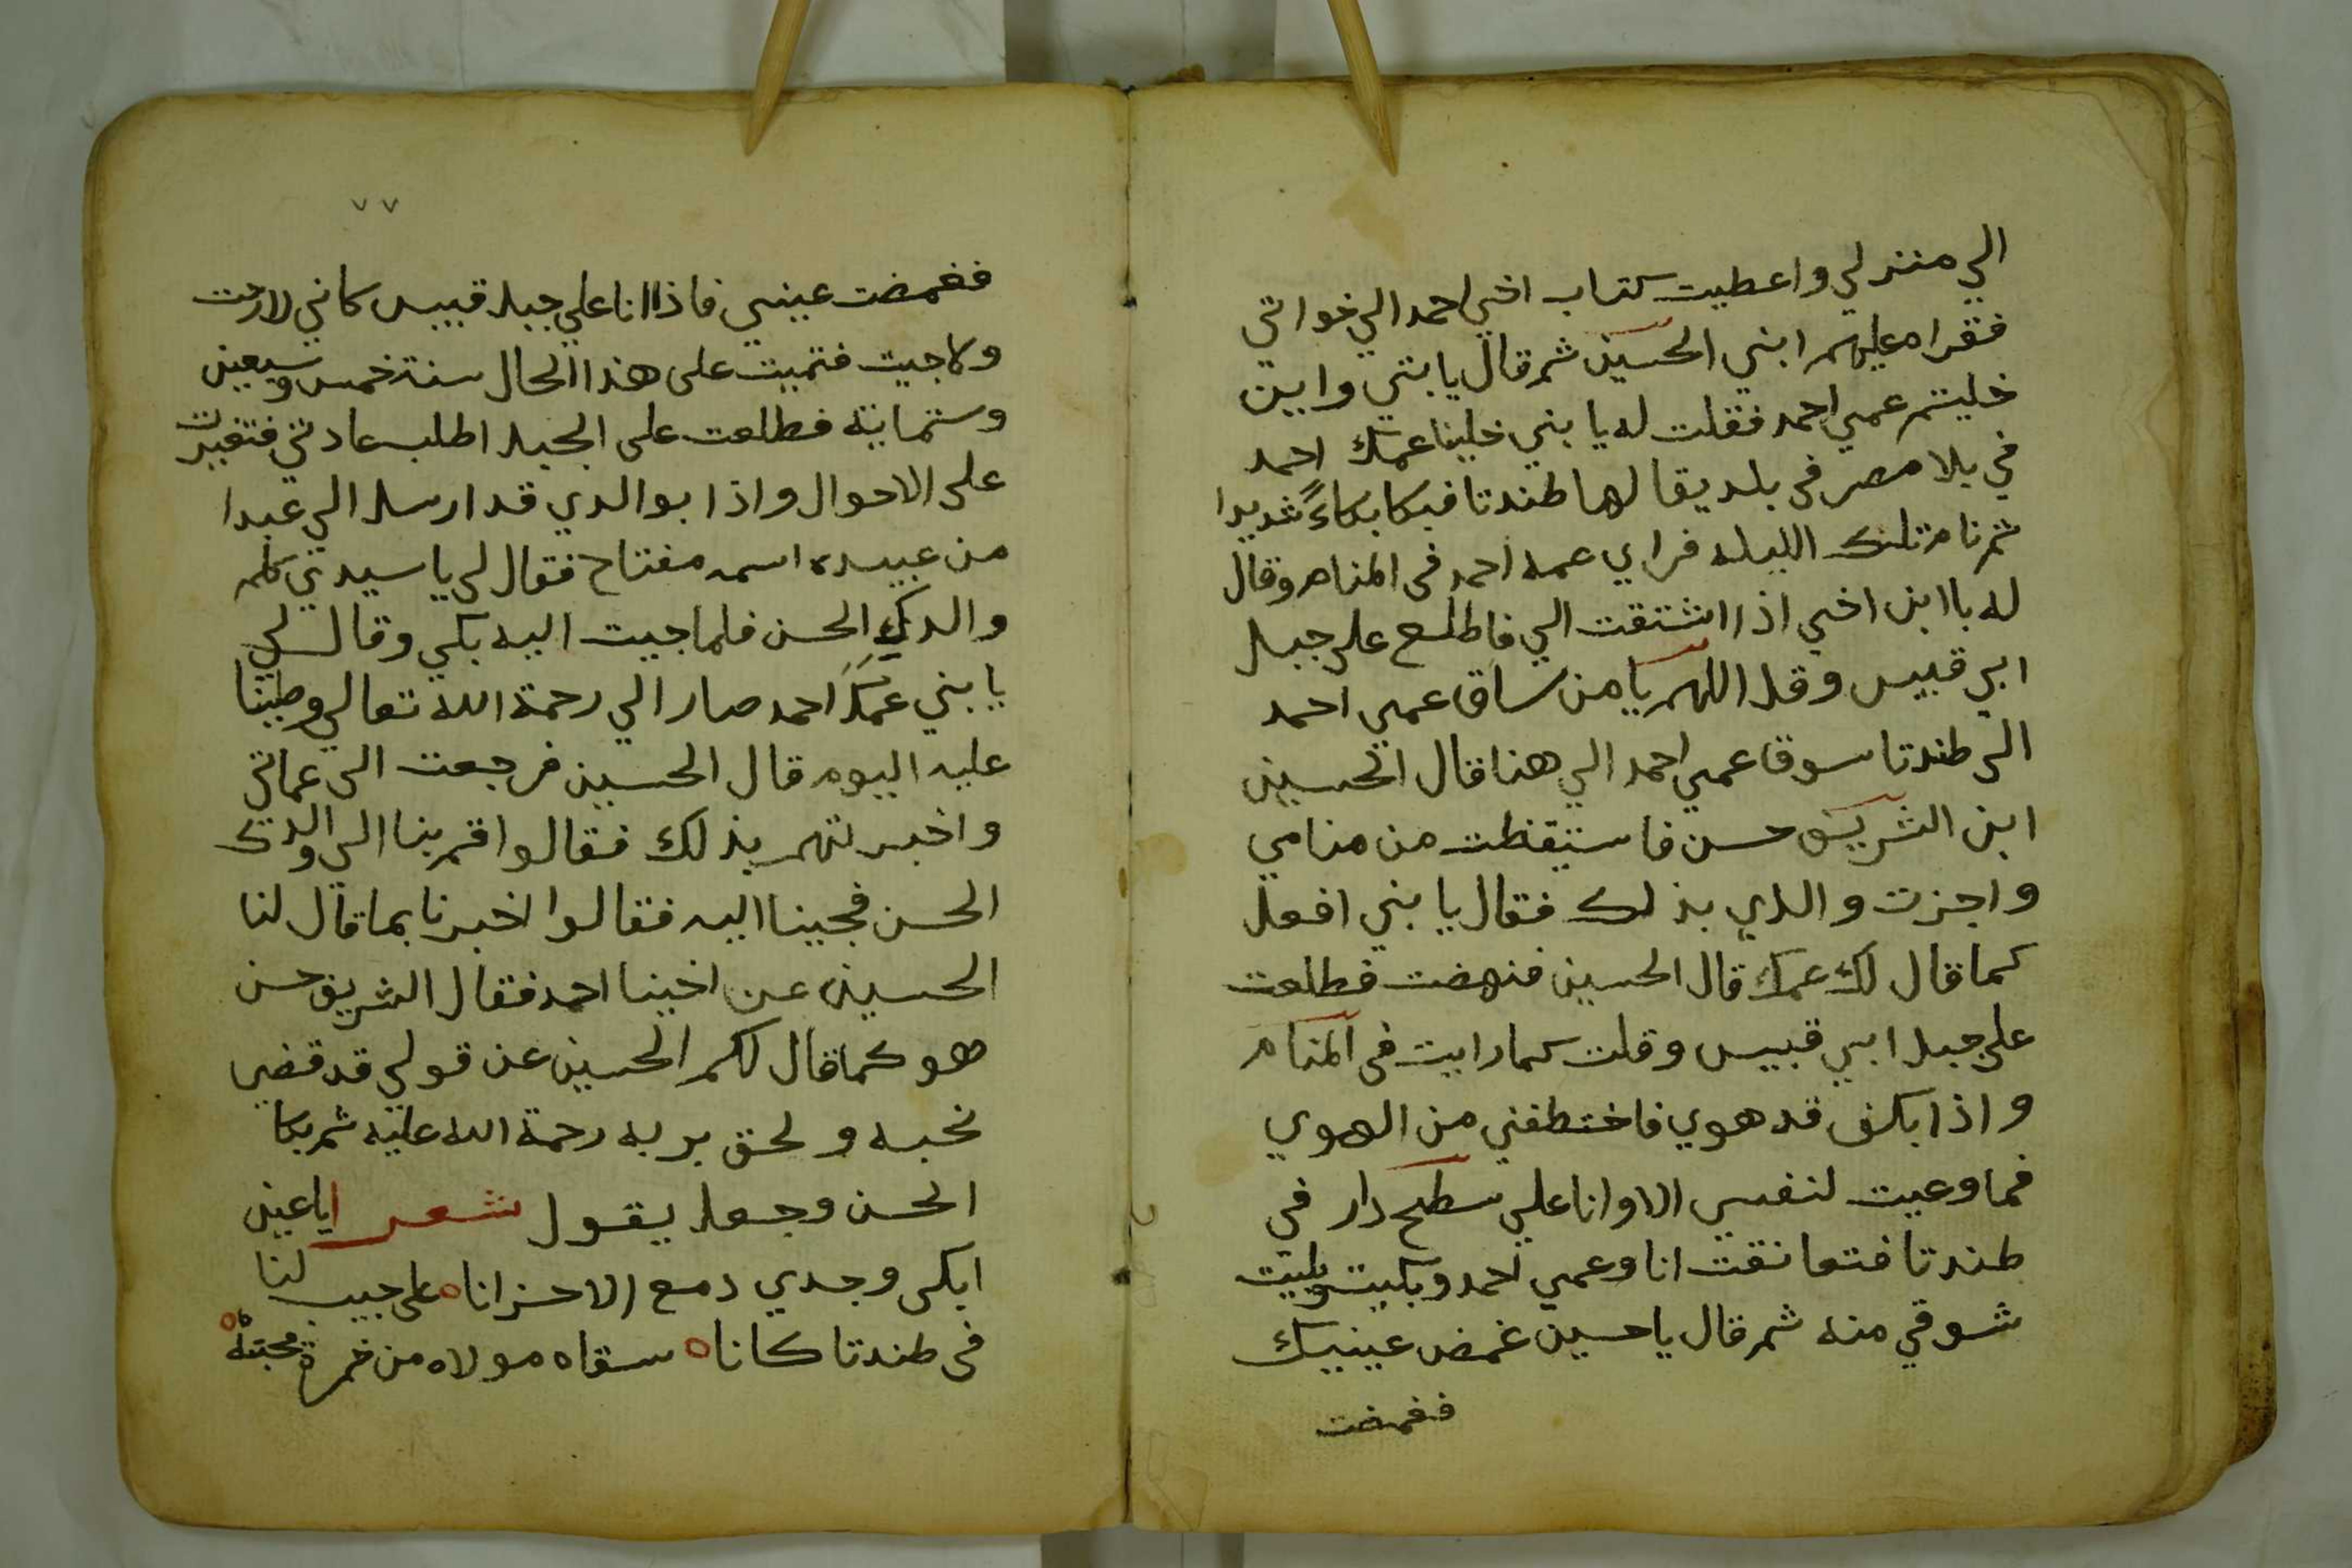 الي منزلي واعطيت كتاب اخي احمد الي خواتي
فقراه عليهم ابني الحسين ثم قال يا بتي وابين
خليتم عمي احمد فقلت له يا بني خلينا عمك احمد
في بلا مصر في بلد يقا لها طندتا فبكا بكاءً شديدا
ثم نام تلك الليله فراي عمه احمد في المنام وقال
له يا ابن اخي اذا اشتقت الي فاطلع على جبل
ابي قبيس وقل اللهم يا من ساق عمي احمد
الى طندتا سوق عمي احمد الي هنا قال الحسين
ابن الشريف حسن فاستيقظت من منامي
واجزت والدي بذلك فقال يا بني افعل
كما قال لك عمك قال الحسين فنهضت فطلعت
على جبل ابي قبيس وقلت كما رايت في المنام
واذا بكف قد هوي فاختطفني من الهوي
فما وعيت لنفسي الا وانا علي سطح دار في
طندتا فتعانقت انا وعمي احمد وبكيت وبليت
شوقي منه ثم قال يا حسين غمض عينيك
فغمضت
٧٧
فغمضت عيني فاذا انا علي جبل قبيس كاني لا رحت
ولا جيت فتميت على هذا الحال سنة خمس وسبعين
وستماية فطلعت على الجبل اطلب عادتي فتغيرت
على الاحوال واذا بوالدي قد ارسل الي عبدا
من عبيده اسمه مفتاح فقال لي يا سيدي كلم
والدك الحسن فلما جيت اليه بكي وقال لي
يا بني عمك احمد صار الي رحمة الله تعالي وطبنا
عليه اليوم قال الحسين فرجعت الى عماتي
واخبرتهم بذلك فقالوا قم بنا الي والدك
الحسن فجينا اليه فقالوا اخبرنا بما قال لنا
الحسين عن اخينا احمد فقال الشريف حسن
هو كما قال لكم الحسين عن قولي قد قضي
نحبه ولحق بربه رحمة الله عليه ثم بكا
الحسن وجعل يقول شعر اياعين
ابكى وجدي دمع الاحزانا ه على حبيب لنا
في طندتا كانا ه سقاه مولاه من خمرة محبته ه